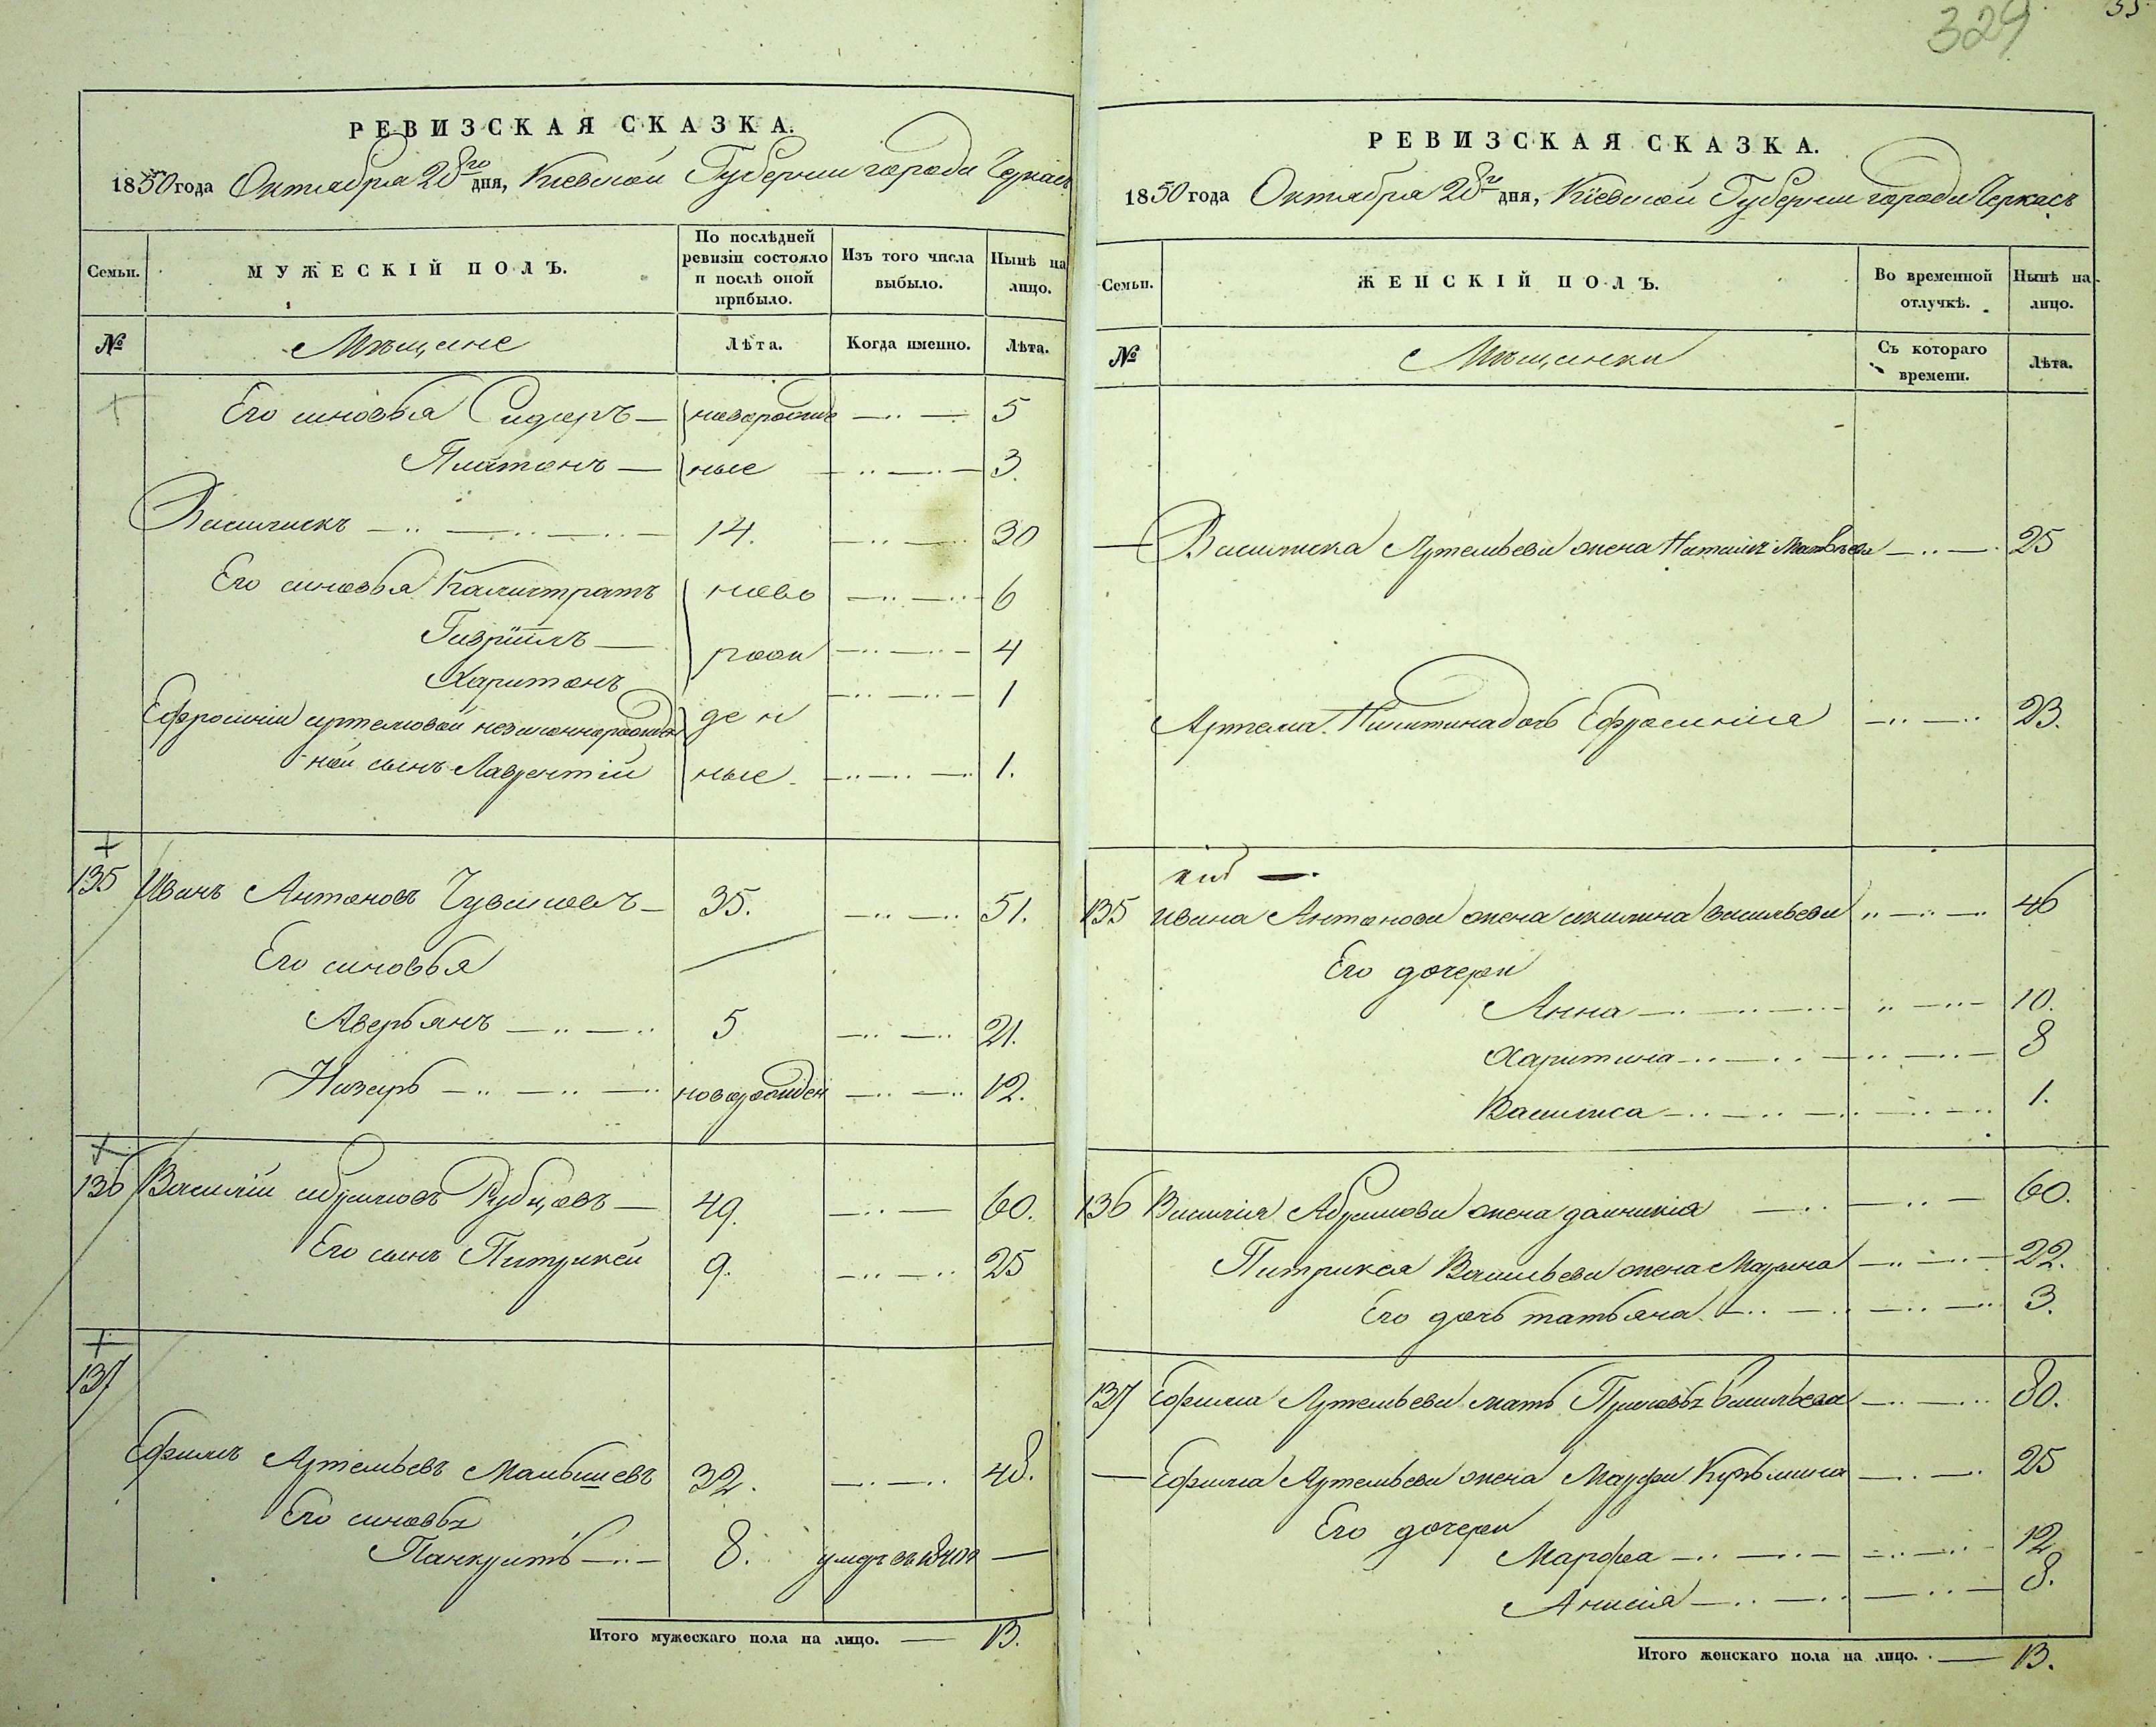 329
РЕВИЗСКАЯ СКАЗКА.
1850 года Октября 28го дня, Киевской Губернии города Черкасъ
Семьи.
МУЖЕСКІЙ ПОЛЪ.
По послѣдней ревизіи состояло и послѣ оной прибыло.
Изъ того числа выбыло.
Нынѣ на лицо.
№
Мѣщане
Лѣта.
Когда именно.
Лѣта.
Его синовья Сидоръ — новорожден — 5
Платонъ — ные — 3
Василискъ — 14. — 30
Его синовья Калистратъ ново — 6
Гавріилъ — рож — 4
Харитонъ — 1
Ефросиніи артемовой незаконнорожден ден
ной сынъ Лаврентій ные — 1.
135 Иванъ Антоновъ — 35. — 51.
Его синовья
Аверьянъ — 5 — 21.
Назаръ — новорожден — 12.
136 Василій абрамовъ Рубцовъ — 49. — 60.
Его сынъ Патрикей 9. — 25
137
Ефимъ Артемьевъ Малышевъ 32. — 48.
Его синовья
Панкратъ — 8. умеръ въ —
Итого мужескаго пола на лицо. — 13.
РЕВИЗСКАЯ СКАЗКА.
1850 года Октября 28го дня, Кіевской Губернии города Черкасъ
Семьи.
ЖЕНСКІЙ ПОЛЪ.
Во временной отлучкѣ.
Нынѣ на лицо.
№
Мѣщанки
Съ котораго времени.
Лѣта.
Василиска Артемьева жена Наталія Матвѣева — 25
Артема Никитина дочь Ефросинія — 23.
135 ивана Антонова жена акилина васильева — 46
Его дочери
Анна — 10.
Харитина — 8
Василиса — 1.
136 Василія Абрамова жена домникія — 60.
Патрикея Васильева жена Марина — 22.
Его дочь татьяна — 3.
137 Ефима Артемьева мать васильева — 80.
Ефима Артемьева жена Марфа Кузьмина — 25
Его дочери
Марфа — 12
Анисія — 8.
Итого женскаго пола на лицо. — 13.